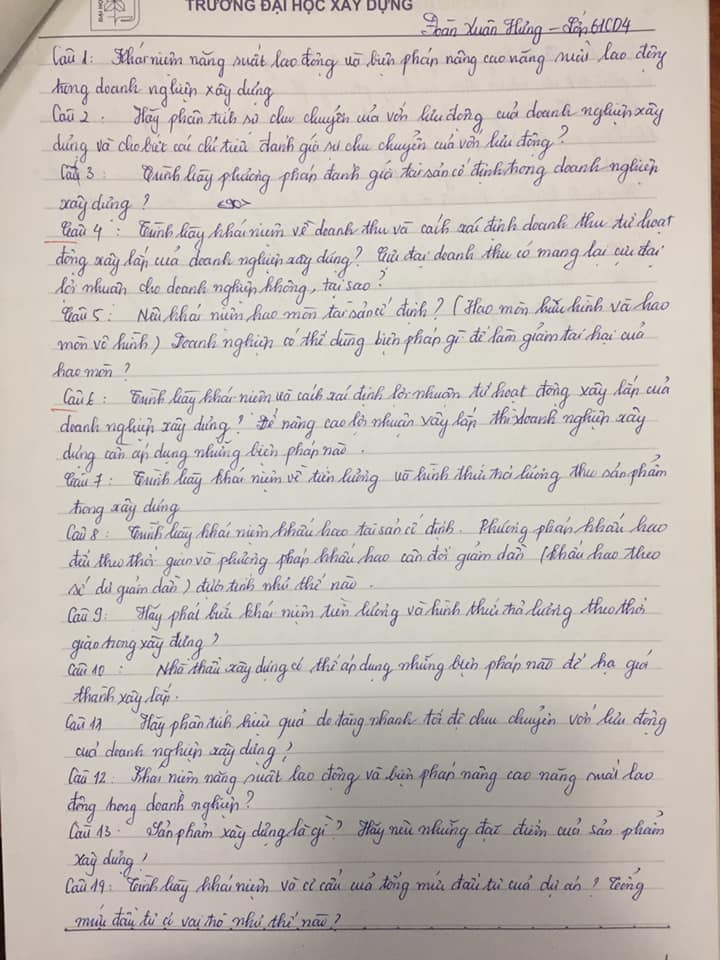 TRƯỜNG ĐẠI HỌC XÂY DỰNG
Đoàn Xuân Hưng - Lớp 61CD4
Câu 1: Khái niệm năng suất lao động và biện pháp nâng cao năng suất lao động
trong doanh nghiệp xây dựng
Câu 2: Hãy phân tích sự chu chuyển của vốn lưu động của doanh nghiệp xây
dựng và cho biết các chỉ tiêu đánh giá sự chu chuyển của vốn lưu động?
Câu 3: Trình bày phương pháp đánh giá tài sản cố định trong doanh nghiệp
xây dựng?
Câu 4: Trình bày khái niệm về doanh thu và cách xác định doanh thu từ hoạt
động xây lắp của doanh nghiệp xây dựng? Cực đại doanh thu có mang lại cực đại
lợi nhuận cho doanh nghiệp không, tại sao?
Câu 5: Nêu khái niệm hao mòn tài sản cố định? (Hao mòn hữu hình và hao
mòn vô hình) Doanh nghiệp có thể dùng biện pháp gì để làm giảm tác hại của
hao mòn?
Câu 6: Trình bày khái niệm và cách xác định lợi nhuận từ hoạt động xây lắp của
doanh nghiệp xây dựng? Để nâng cao lợi nhuận xây lắp thì doanh nghiệp xây
dựng cần áp dụng những biện pháp nào.
Câu 7: Trình bày khái niệm về tiền lương và hình thức trả lương theo sản phẩm
trong xây dựng
Câu 8: Trình bày khái niệm khấu hao tài sản cố định. Phương pháp khấu hao
đều theo thời gian và phương pháp khấu hao cân đối giảm dần (khấu hao theo
số dư giảm dần) được tính như thế nào.
Câu 9: Hãy phát biểu khái niệm tiền lương và hình thức trả lương theo thời
gian trong xây dựng?
Câu 10: Nhà thầu xây dựng có thể áp dụng những biện pháp nào để hạ giá
thành xây lắp.
Câu 11 Hãy phân tích hiệu quả do tăng nhanh tốc độ chu chuyển vốn lưu động
của doanh nghiệp xây dựng?
Câu 12: Khái niệm năng suất lao động và biện pháp nâng cao năng suất lao
động trong doanh nghiệp?
Câu 13. Sản phẩm xây dựng là gì? Hãy nêu những đặc điểm của sản phẩm
xây dựng?
Câu 14: Trình bày khái niệm và cơ cấu của tổng mức đầu tư của dự án? Tổng
mức đầu tư có vai trò như thế nào?